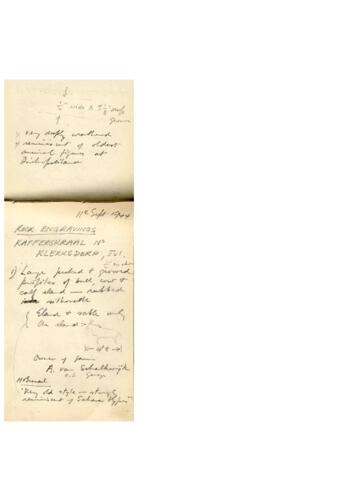 1/2" wide x ± 1/8" deep
groove
very deeply weathered
& reminiscent of oldest
animal figures at
11th Sept. 1944
ROCK ENGRAVINGS
KAFFERSKRAAL No
KLERKSDORP, TVL.
1) Large pecked & grooved
profiles of bull, cow &
calf eland — rubbed
silhouette
Eland & sable only
On eland
Owner of farm
A. van Schalkwijk
H. Breuil
"Very old style — strongly
reminiscent of Sahara types"